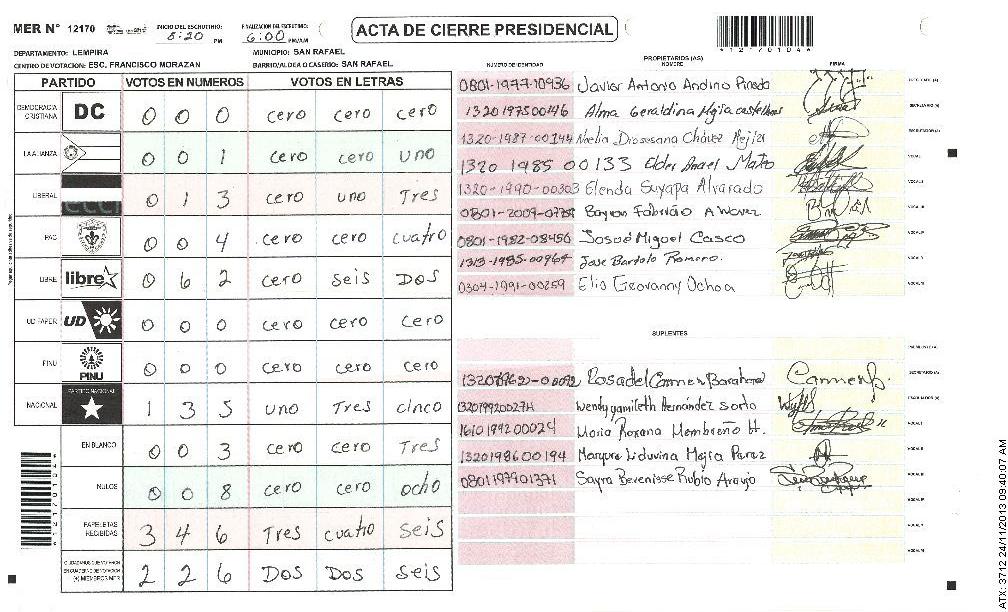 MER N° 12170 INICIO DEL ESCRUTINIO: 5:20 PM FINALIZACION DEL ESCRUTINIO: 6:00 PM/AM ACTA DE CIERRE PRESIDENCIAL
DEPARTAMENTO: LEMPIRA MUNICIPIO: SAN RAFAEL
CENTRO DE VOTACION: ESC. FRANCISCO MORAZAN BARRIO/ALDEA O CASERIO: SAN RAFAEL
PARTIDO VOTOS EN NUMEROS VOTOS EN LETRAS
DEMOCRACIA CRISTIANA DC 0 0 0 cero cero cero
LA ALIANZA 0 0 1 cero cero uno
LIBERAL 0 1 3 cero uno Tres
PAC 0 0 4 cero cero cuatro
LIBRE libre 0 6 2 cero seis DOS
UD FAPER UD 0 0 0 cero cero cero
PINU PINU 0 0 0 cero cero cero
NACIONAL PARTIDO NACIONAL 1 3 5 uno Tres cinco
EN BLANCO 0 0 3 cero cero Tres
NULOS 0 0 8 cero cero ocho
PAPELETAS RECIBIDAS 3 4 6 Tres cuatro seis
CIUDADANOS QUE VOTARON EN CUADERNO DE VOTACION (+) MIEMBROS MER 2 2 6 DOS DOS seis
PROPIETARIOS (AS)
NUMERO DE IDENTIDAD NOMBRE FIRMA
0801-1977-10936 Javier Antonio Andino Pineda
1320197500146 Alma Geraldina Mejia
1320-1987-00144 Diosesana Chávez Mejia
1320 1985 00133 Elder Anael Mateo
1320-1990-00303 Elenda Suyapa Alvarado
Bayron Fabricio
0801-1982-08456 Josué Miguel Casco
1313-1985-00964 Jose Bartolo Romero.
0304-1991-00259 Elio Geovanny Ochoa
SUPLENTES
Rosa del Carmen Barahona
Wendy yamileth Hernández sorto
1610199200024 Maria Roxana Membreño H.
1320198600194 Liduvina Mejia Perez
0801197901371 Sayra Berenisse Rubio Araujo
ATX: 3712 24/11/2013 09:40:07 AM